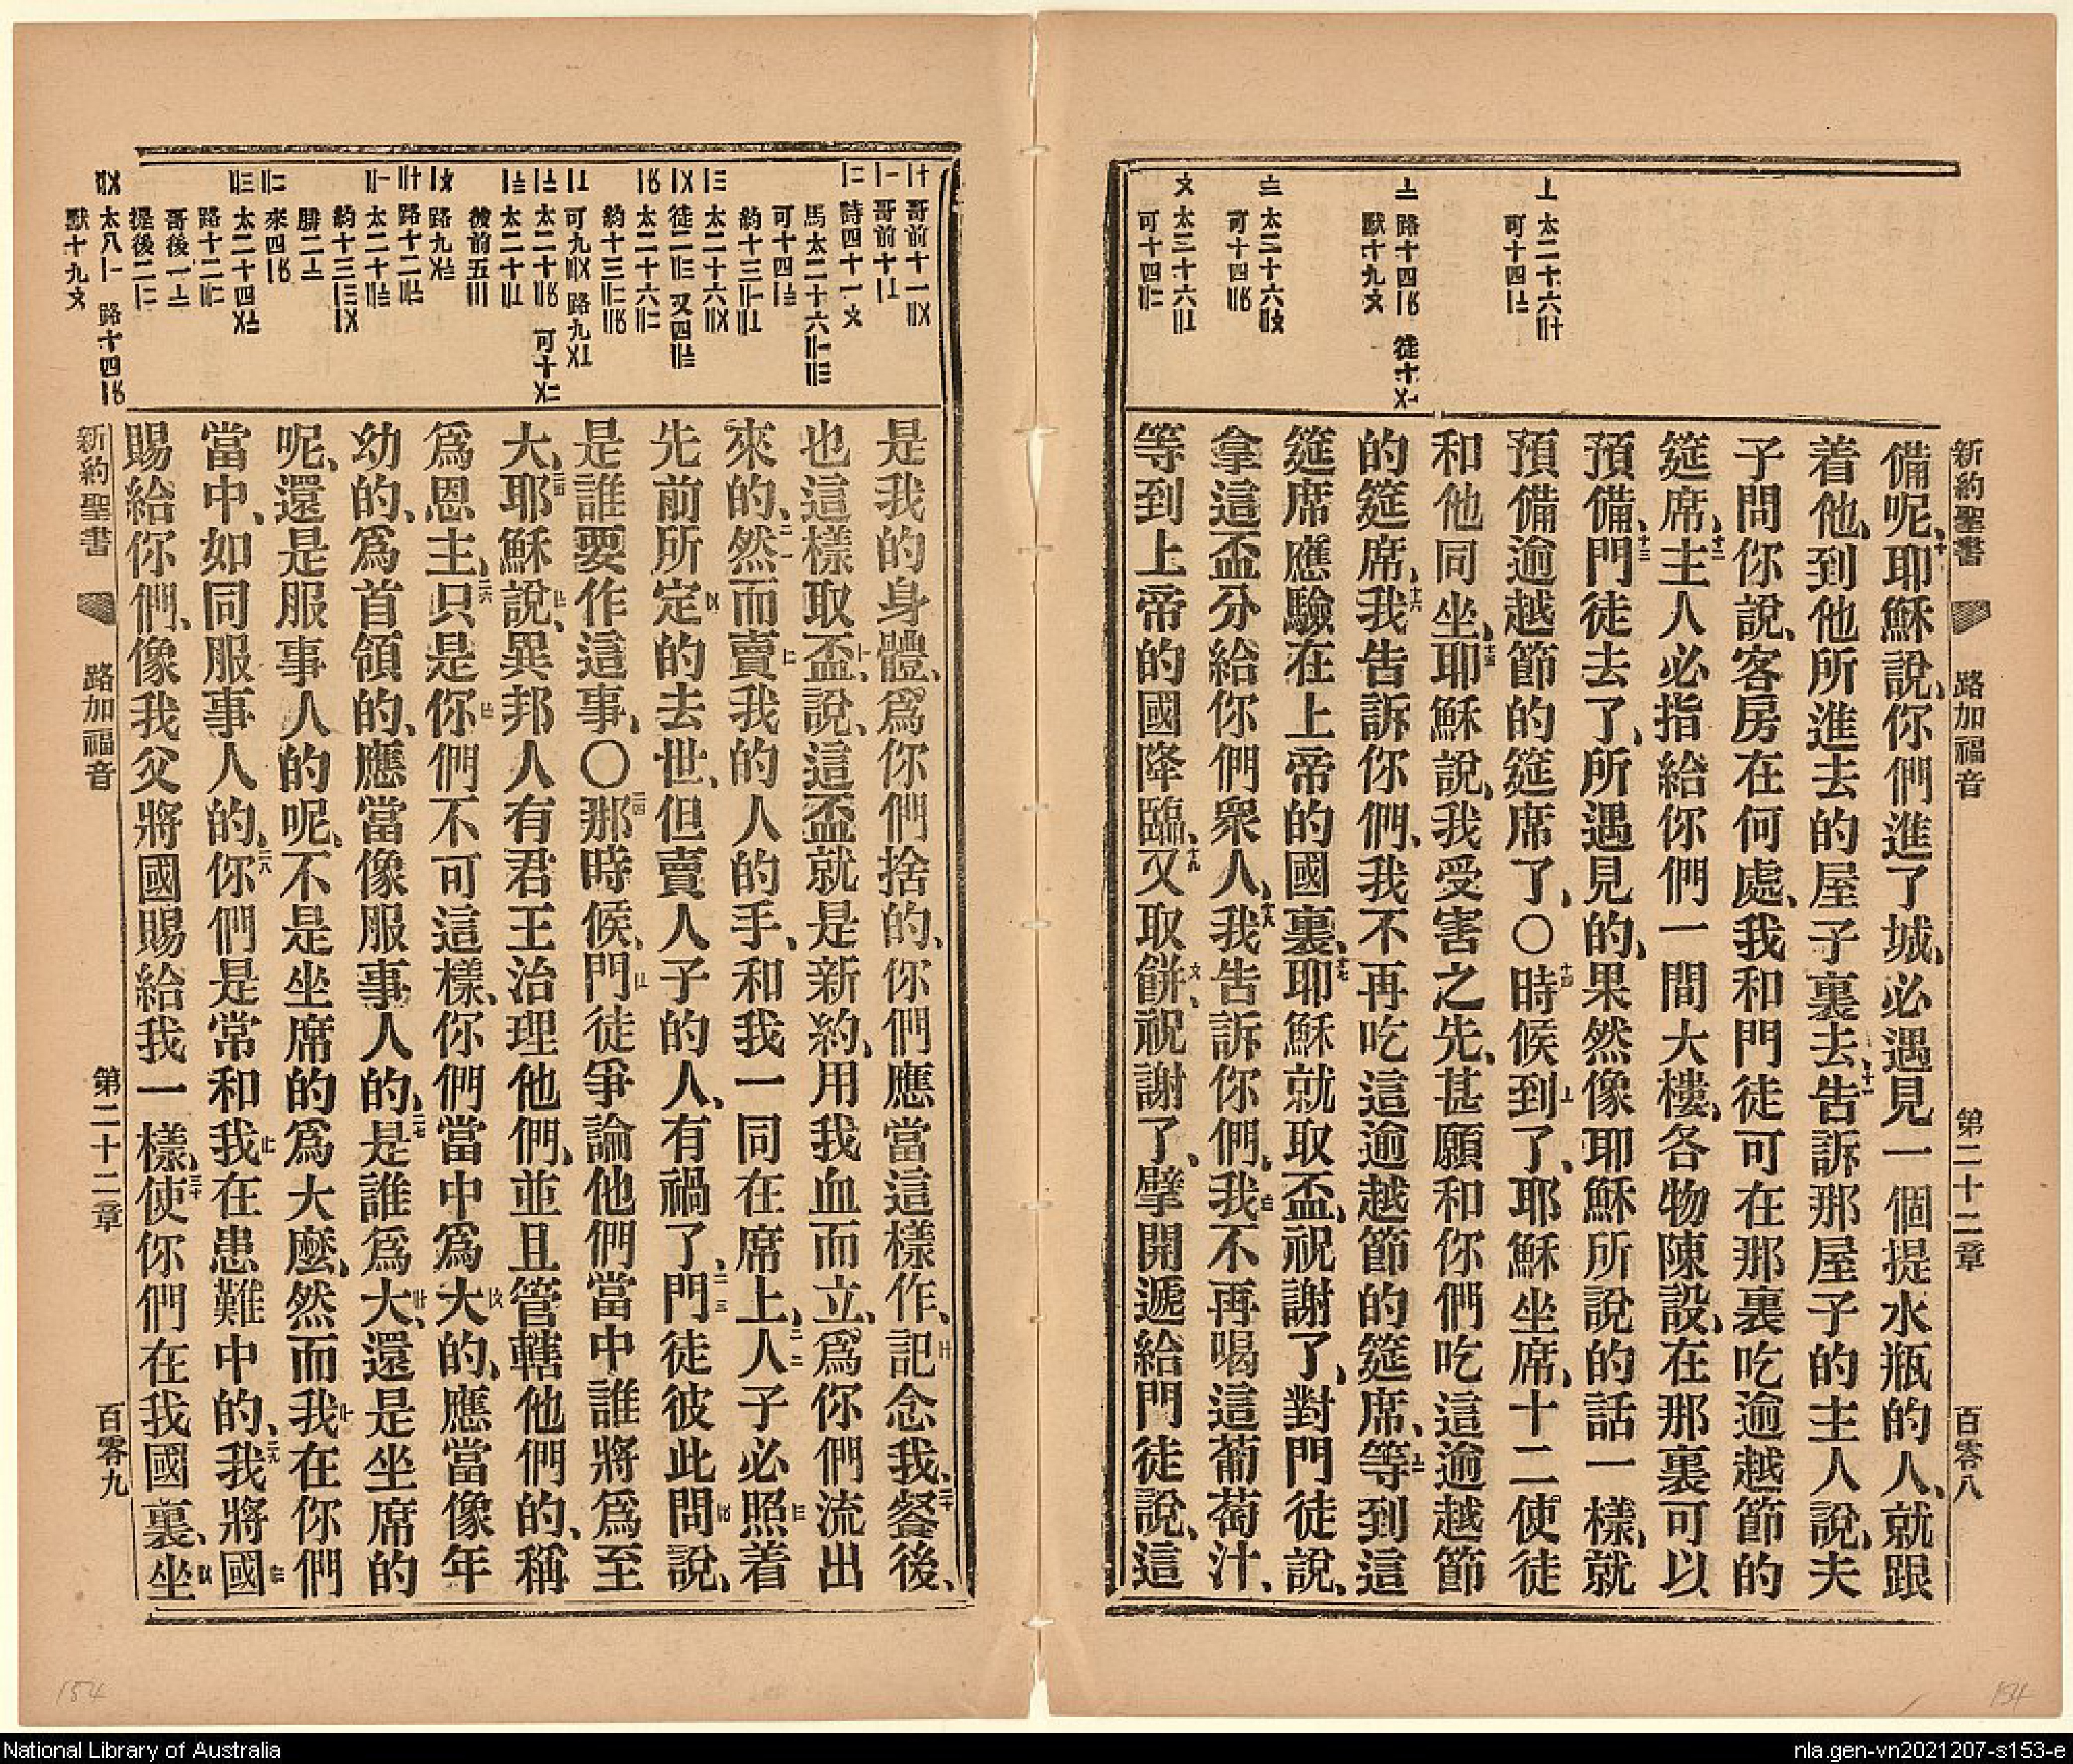 新約聖書 路加福音 第二十二章 百零八
備呢、十耶穌說、你們進了城、必遇見一個提水瓶的人、就跟
着他、到他所進去的屋子裏去、十一告訴那屋子的主人說、夫
子問你說、客房在何處、我和門徒可在那裏吃逾越節的
筵席、十二主人必指給你們一間大樓、各物陳設、在那裏可以
預備、十三門徒去了、所遇見的、果然像耶穌所說的話一樣、就
預備逾越節的筵席了、〇十四時候到了、耶穌坐席、十二使徒
和他同坐、十五耶穌說、我受害之先、甚願和你們吃這逾越節
的筵席、十六我告訴你們、我不再吃這逾越節的筵席、等到這
筵席應驗在上帝的國裏、十七耶穌就取盃、祝謝了、對門徒說、
拿這盃分給你們衆人、十八我告訴你們、我不再喝這葡萄汁、
等到上帝的國降臨、十九又取餅、祝謝了、擘開遞給門徒說、這
〦 太二十六〢十
可十四〡〧
〧 路十四〡〥 徒十〤一
默十九〩
〨 太二十六〢〩
可十四〢〥
〩 太二十六〢〦
可十四〢二
是我的身體、爲你們捨的、你們應當這樣作、記念我、二十餐後、
也這樣取盃、說、這盃就是新約、用我血而立、爲你們流出
來的、二一然而賣我的人的手、和我一同在席上、二二人子必照着
先前所定的去世、但賣人子的人、有禍了、二三門徒彼此問說、
是誰要作這事、〇二四那時候、門徒爭論他們當中誰將爲至
大、二五耶穌說、異邦人有君王治理他們、並且管轄他們的、稱
爲恩主、二六只是你們不可這樣、你們當中爲大的、應當像年
幼的、爲首領的、應當像服事人的、二七是誰爲大、還是坐席的
呢、還是服事人的呢、不是坐席的爲大麼、然而我在你們
當中、如同服事人的、二八你們是常和我在患難中的、二九我將國
賜給你們、像我父將國賜給我一樣、三十使你們在我國裏、坐
新約聖書 路加福音 第二十二章 百零九
154
154
National Library of Australia
nla.gen-vn2021207-s153-e